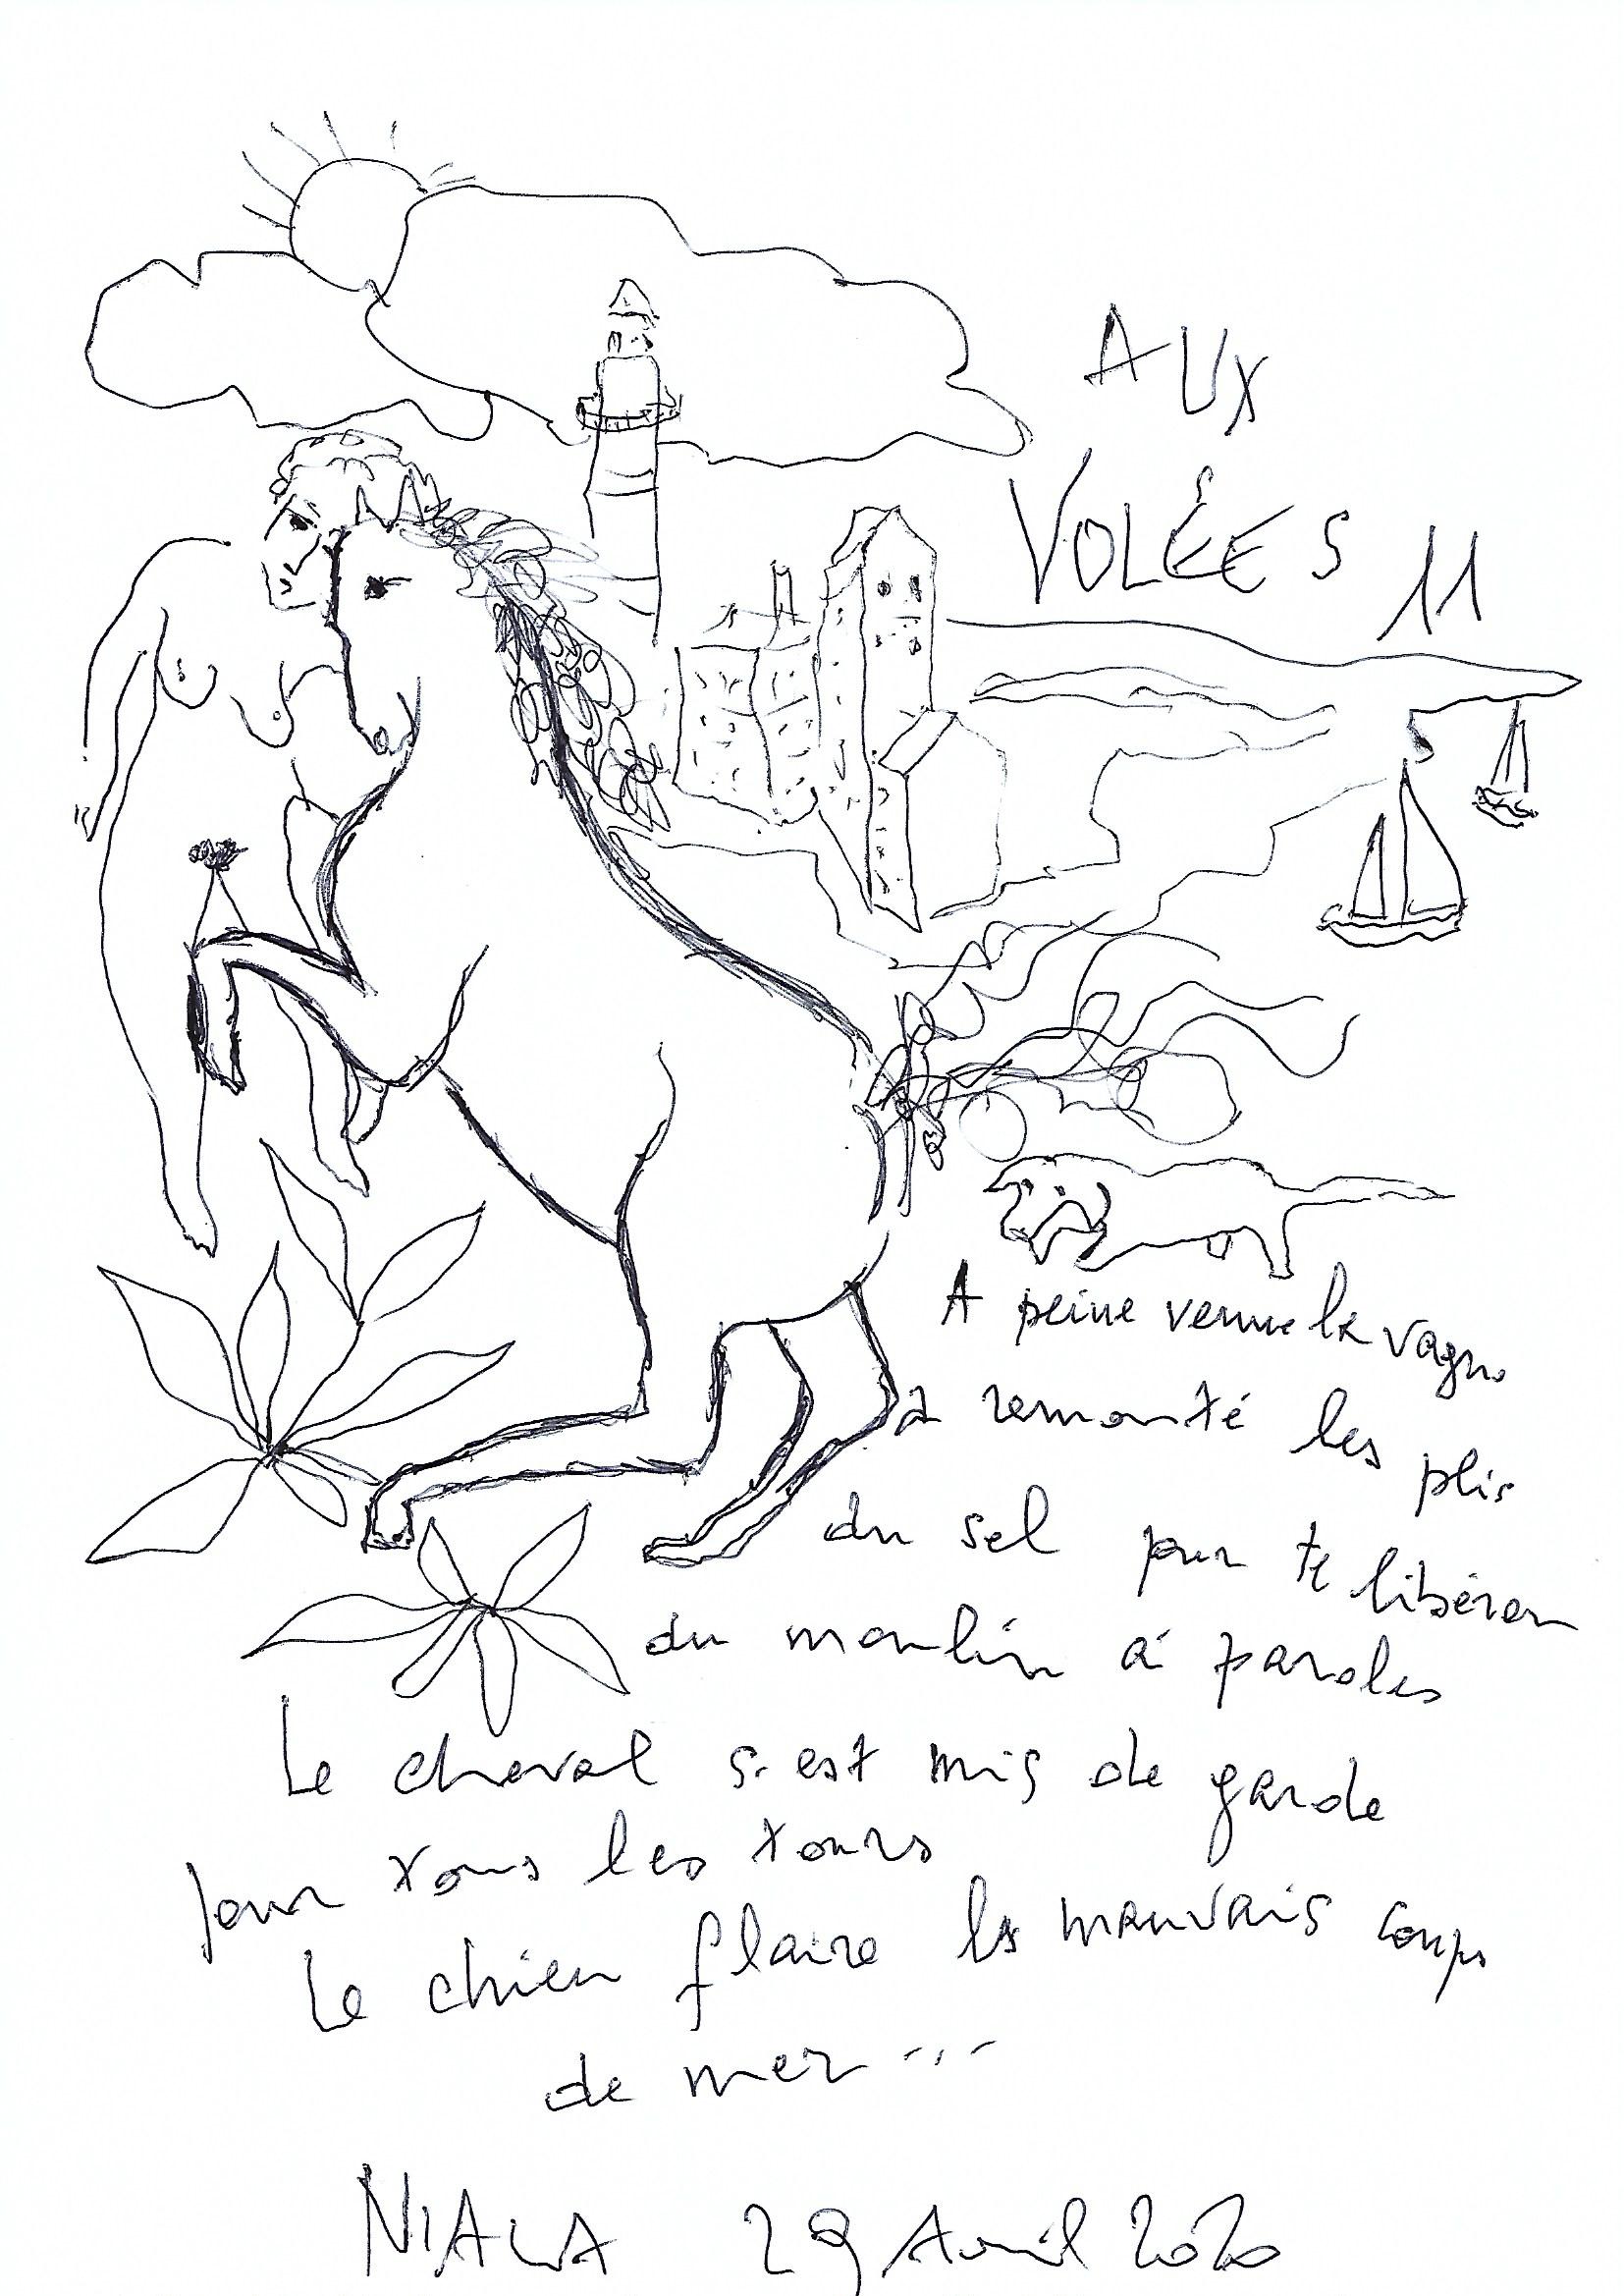 AUX
VOLÉES 11
A peine venue la vague
a remonté les plis
du sel pour te libérer
du moulin à paroles
Le cheval s'est mis de garde
pour tous les tours
Le chien flaire les mauvais coups
de mer...
NIALA 29 Avril 2020